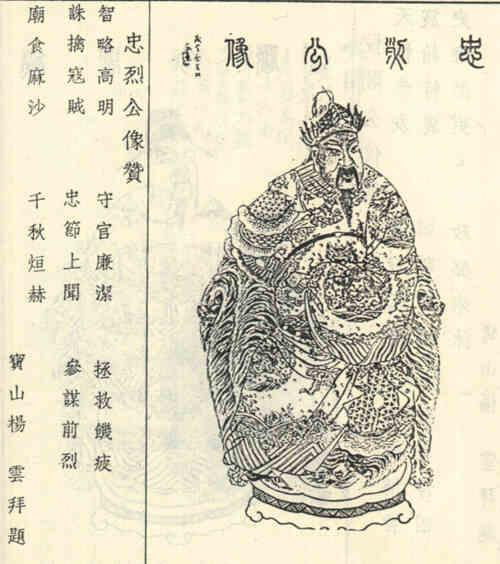 忠烈公像
忠烈公像贊
智略高明 守官廉潔 拯救饑疲
誅擒寇賊 忠節上聞 參謀前烈
廟食麻沙 千秋烜赫
寶山楊雲拜題